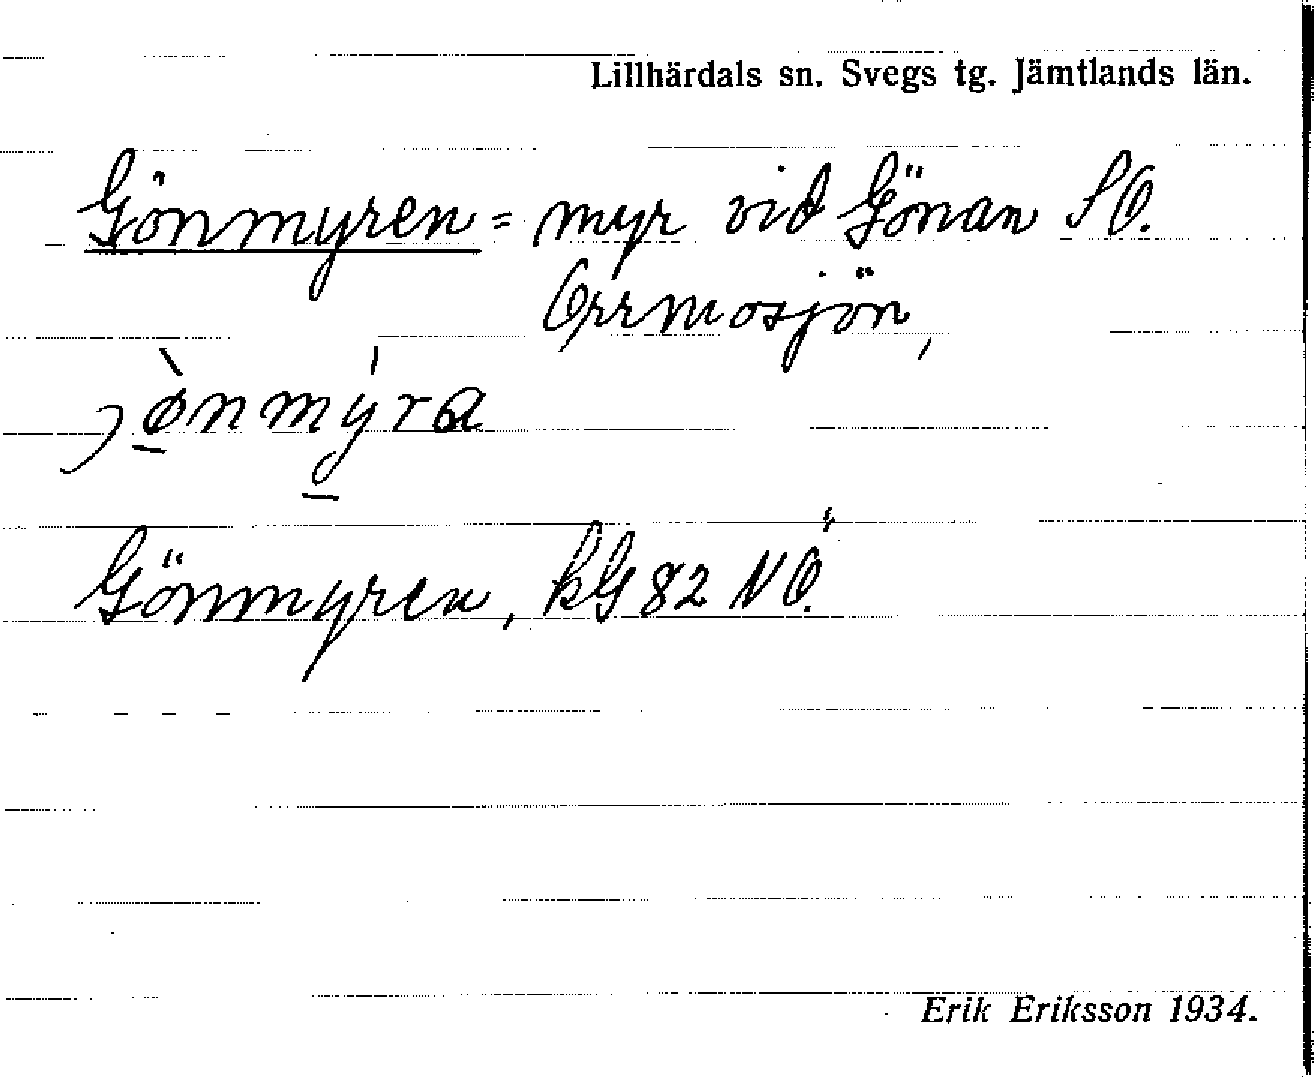 Lillhärdals sn. Svegs tg. Jämtlands län.
Gönmyren = myr vid Gönan SO.
Orrmosjön,
Gönmyren, kG 82 NO.
Erik Eriksson 1934.